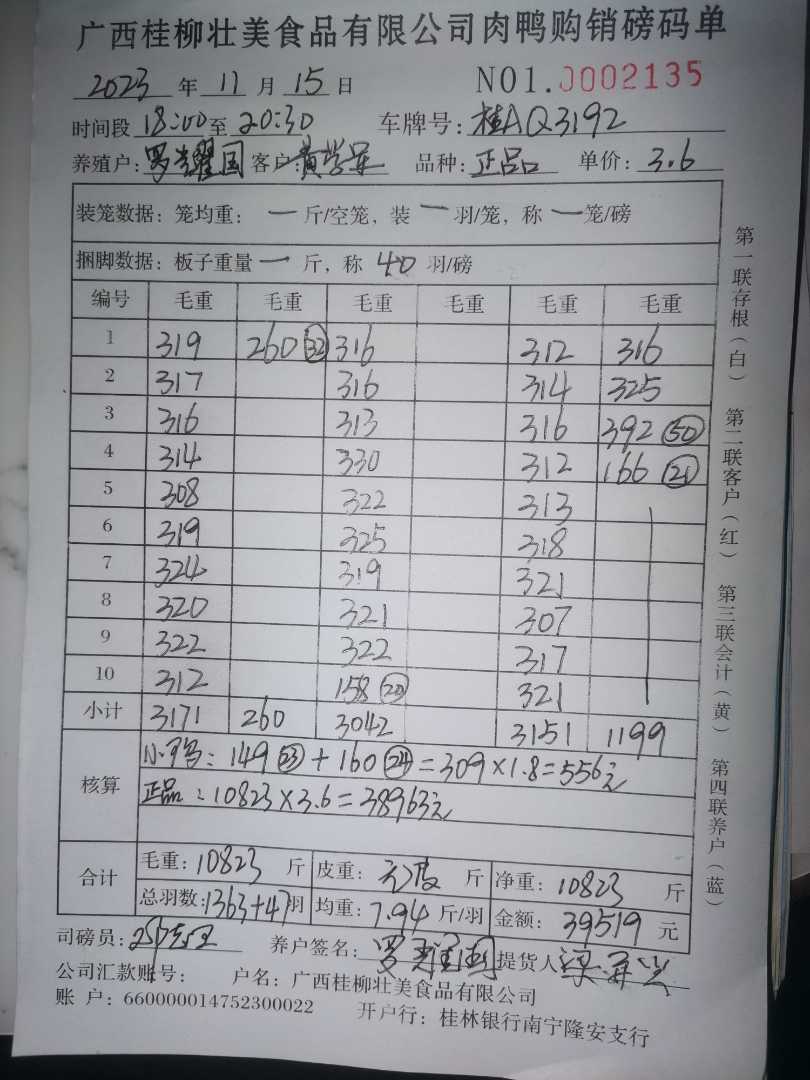 广西桂柳壮美食品有限公司肉鸭购销磅码单
2023 年 11 月 15 日 NO1.0002135
时间段 18:00 至 20:30 车牌号: 桂AQ3192
养殖户: 罗耀国 客户: 黄 品种: 正品 单价: 3.6
装笼数据: 笼均重: 一 斤/空笼, 装 一 羽/笼, 称 一 笼/磅
捆脚数据: 板子重量 一 斤, 称 40 羽/磅
编号 毛重 毛重 毛重 毛重 毛重 毛重
1 319 260 (32) 316 312 316
2 317 316 314 325
3 316 313 316 392 (50)
4 314 330 312 166 (21)
5 308 322 313
6 319 325 318
7 324 319 321
8 320 321 307
9 322 322 317
10 312 158 (20) 321
小计 3171 260 3042 3151 1199
核算 小鸭: 149 (23) + 160 (24) = 309 × 1.8 = 556元
正品: 10823 × 3.6 = 38963元
合计 毛重: 10823 斤 皮重: 斤 净重: 10823 斤
总羽数: 1363+47 羽 均重: 7.94 斤/羽 金额: 39519 元
司磅员: 养户签名: 罗 国 提货人
公司汇款账号: 户名: 广西桂柳壮美食品有限公司
账 户: 660000014752300022 开户行: 桂林银行南宁隆安支行
第一联存根(白) 第二联客户(红) 第三联会计(黄) 第四联养户(蓝)